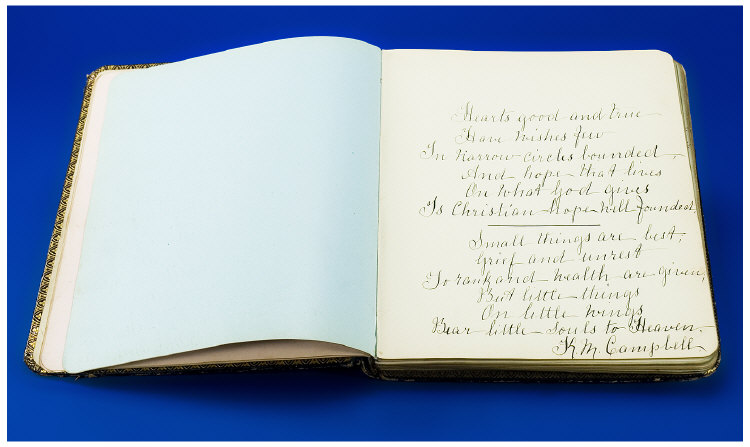 Hearts good and true
Have wishes few
In narrow circles bounded,
And hope that lives
On what God gives
Is Christian Hope well founded.
Small things are best,
Grief and unrest
To rank and wealth are given,
But little things
On little wings
Bear little souls to Heaven.
K. M. Campbell